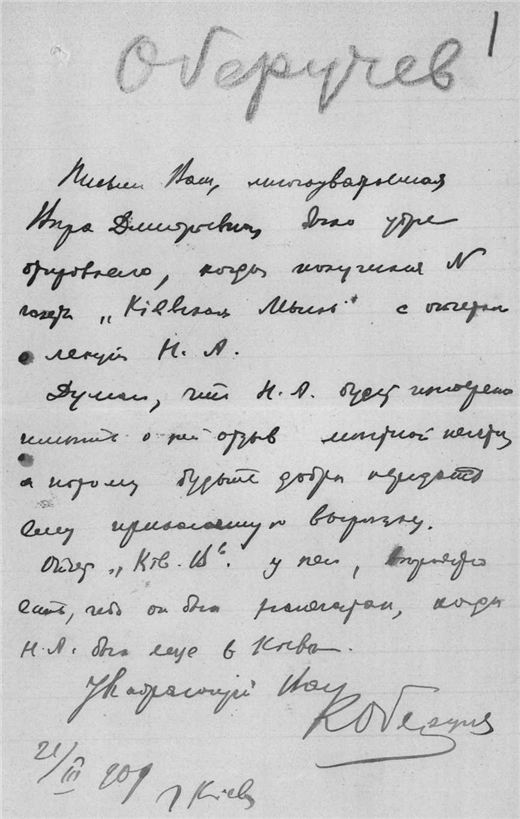 1
Оберучев
Письмо Ваш, многоуважаемая
Вера Дмитриевна, было уже
отправлено, когда получился N
газеты „Кіевская Мысль" с отчетом
о лекции Н. А.
Думаю, что Н. А. будет интересно
иметь о ней отзыв местной печати,
а потому будьте добры передать
ему прилагаемую вырезку.
Отчет „Кіев. В". у него,
есть, ибо он был напечатан, когда
Н. А. был еще в Киеве.
Уважающий Вас
К Оберучев
21/III 909
г Кіев